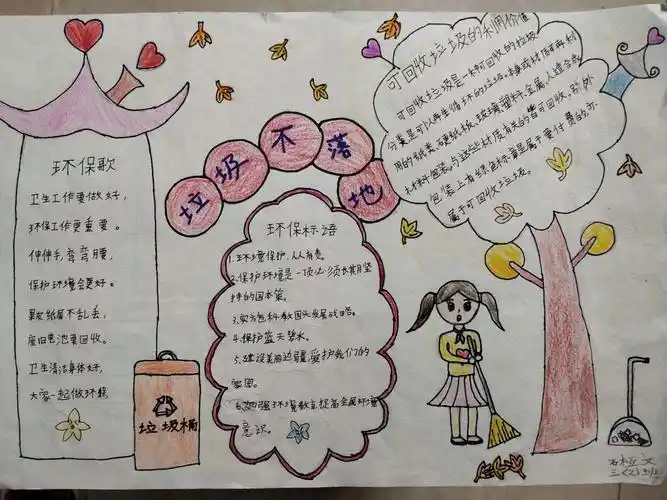 垃圾不落地
环保歌
卫生工作要做好，
环保工作更重要。
伸伸手，弯弯腰，
保护环境会更好。
果皮纸屑不乱丢，
废旧电池要回收。
卫生清洁身体好，
大家一起做环保
垃圾桶
环保标语
1.环境保护，人人有责。
2.保护环境是一项必须长期坚
持的国本策。
3.实方包科教国永发展战略。
4.保护蓝天碧水。
5.建设美丽边疆，爱护我们的
家园。
6.加强环境教育，提高全民环境
意识。
可回收垃圾的利用价值
可回收垃圾是一种可回收的垃圾
分类是可以再生循环的垃圾。本身或材质可再利
用的纸类、硬纸板、玻璃、塑料、金属、人造合成
材料包装，与这些材质有关的皆可回收。另外
包装上有绿色标章是属于要付费的，亦
属于可回收垃圾。
三(2)